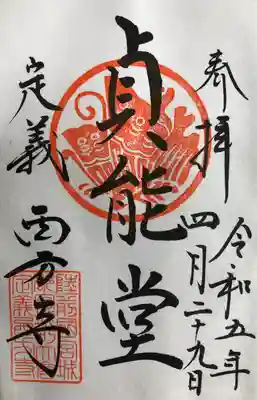 奉拝
令和五年
四月二十九日
貞能堂
定義
西方寺